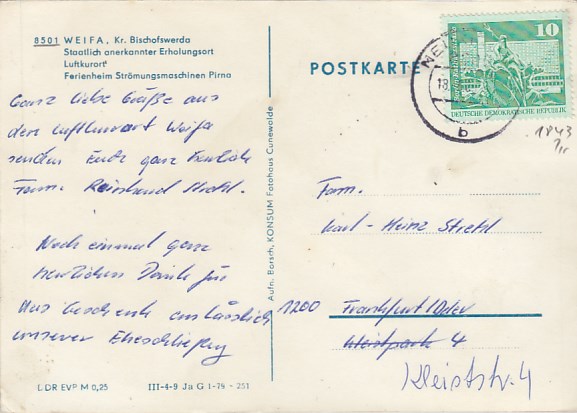 8501 WEIFA, Kr. Bischofswerda
Staatlich anerkannter Erholungsort
Luftkurort
Ferienheim Strömungsmaschinen Pirna
Ganz liebe Grüße aus
dem Luftkurort Weifa
senden Euch ganz herzlich
Fam. Reinhard Strehl.
Noch einmal ganz
herzlichen Dank für
das Geschenk anlässlich
unserer Eheschließung
L DR EVP M 0,25
III-4-9 Ja G 1-79 - 251
Aufn. Borsch, KONSUM Fotohaus Cunewalde
POSTKARTE
10
DEUTSCHE DEMOKRATISCHE REPUBLIK
NE
18.
b
1843
Fam.
Karl-Heinz Strehl
1200 Frankfurt/Oder
Kleistpark 4
Kleiststr. 4